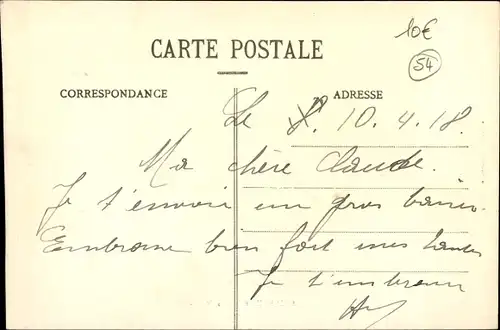 10€
54
CARTE POSTALE
CORRESPONDANCE
ADRESSE
Le 10.4.18.
Ma chère Claude.
Je t'envoie un gros baiser.
Embrasse bien fort mes tantes
Je t'embrasse